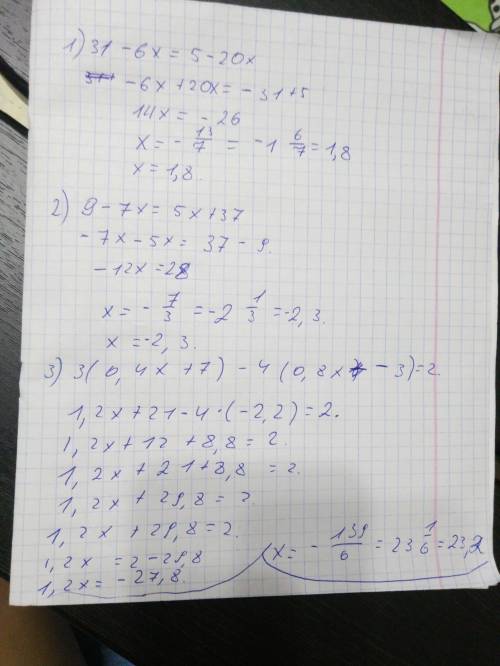 1) 31 - 6x = 5 - 20x
- 6x + 20x = - 31 + 5
14x = - 26
x = - 13/7 = - 1 6/7 = 1,8
x = 1,8.
2) 9 - 7x = 5x + 37
- 7x - 5x = 37 - 9.
- 12x = 28
x = - 7/3 = - 2 1/3 = - 2, 3.
x = - 2, 3.
3) 3(0,4x + 7) - 4(0,8x - 3) = 2.
1,2x + 21 - 4 · (-2,2) = 2.
1,2x + 12 + 8,8 = 2.
1,2x + 21 + 8,8 = 2.
1,2x + 29,8 = 2
1,2x + 29,8 = 2.
1,2x = 2 - 29,8
1,2x = - 27,8.
x = - 139/6 = 23 1/6 = 23,2